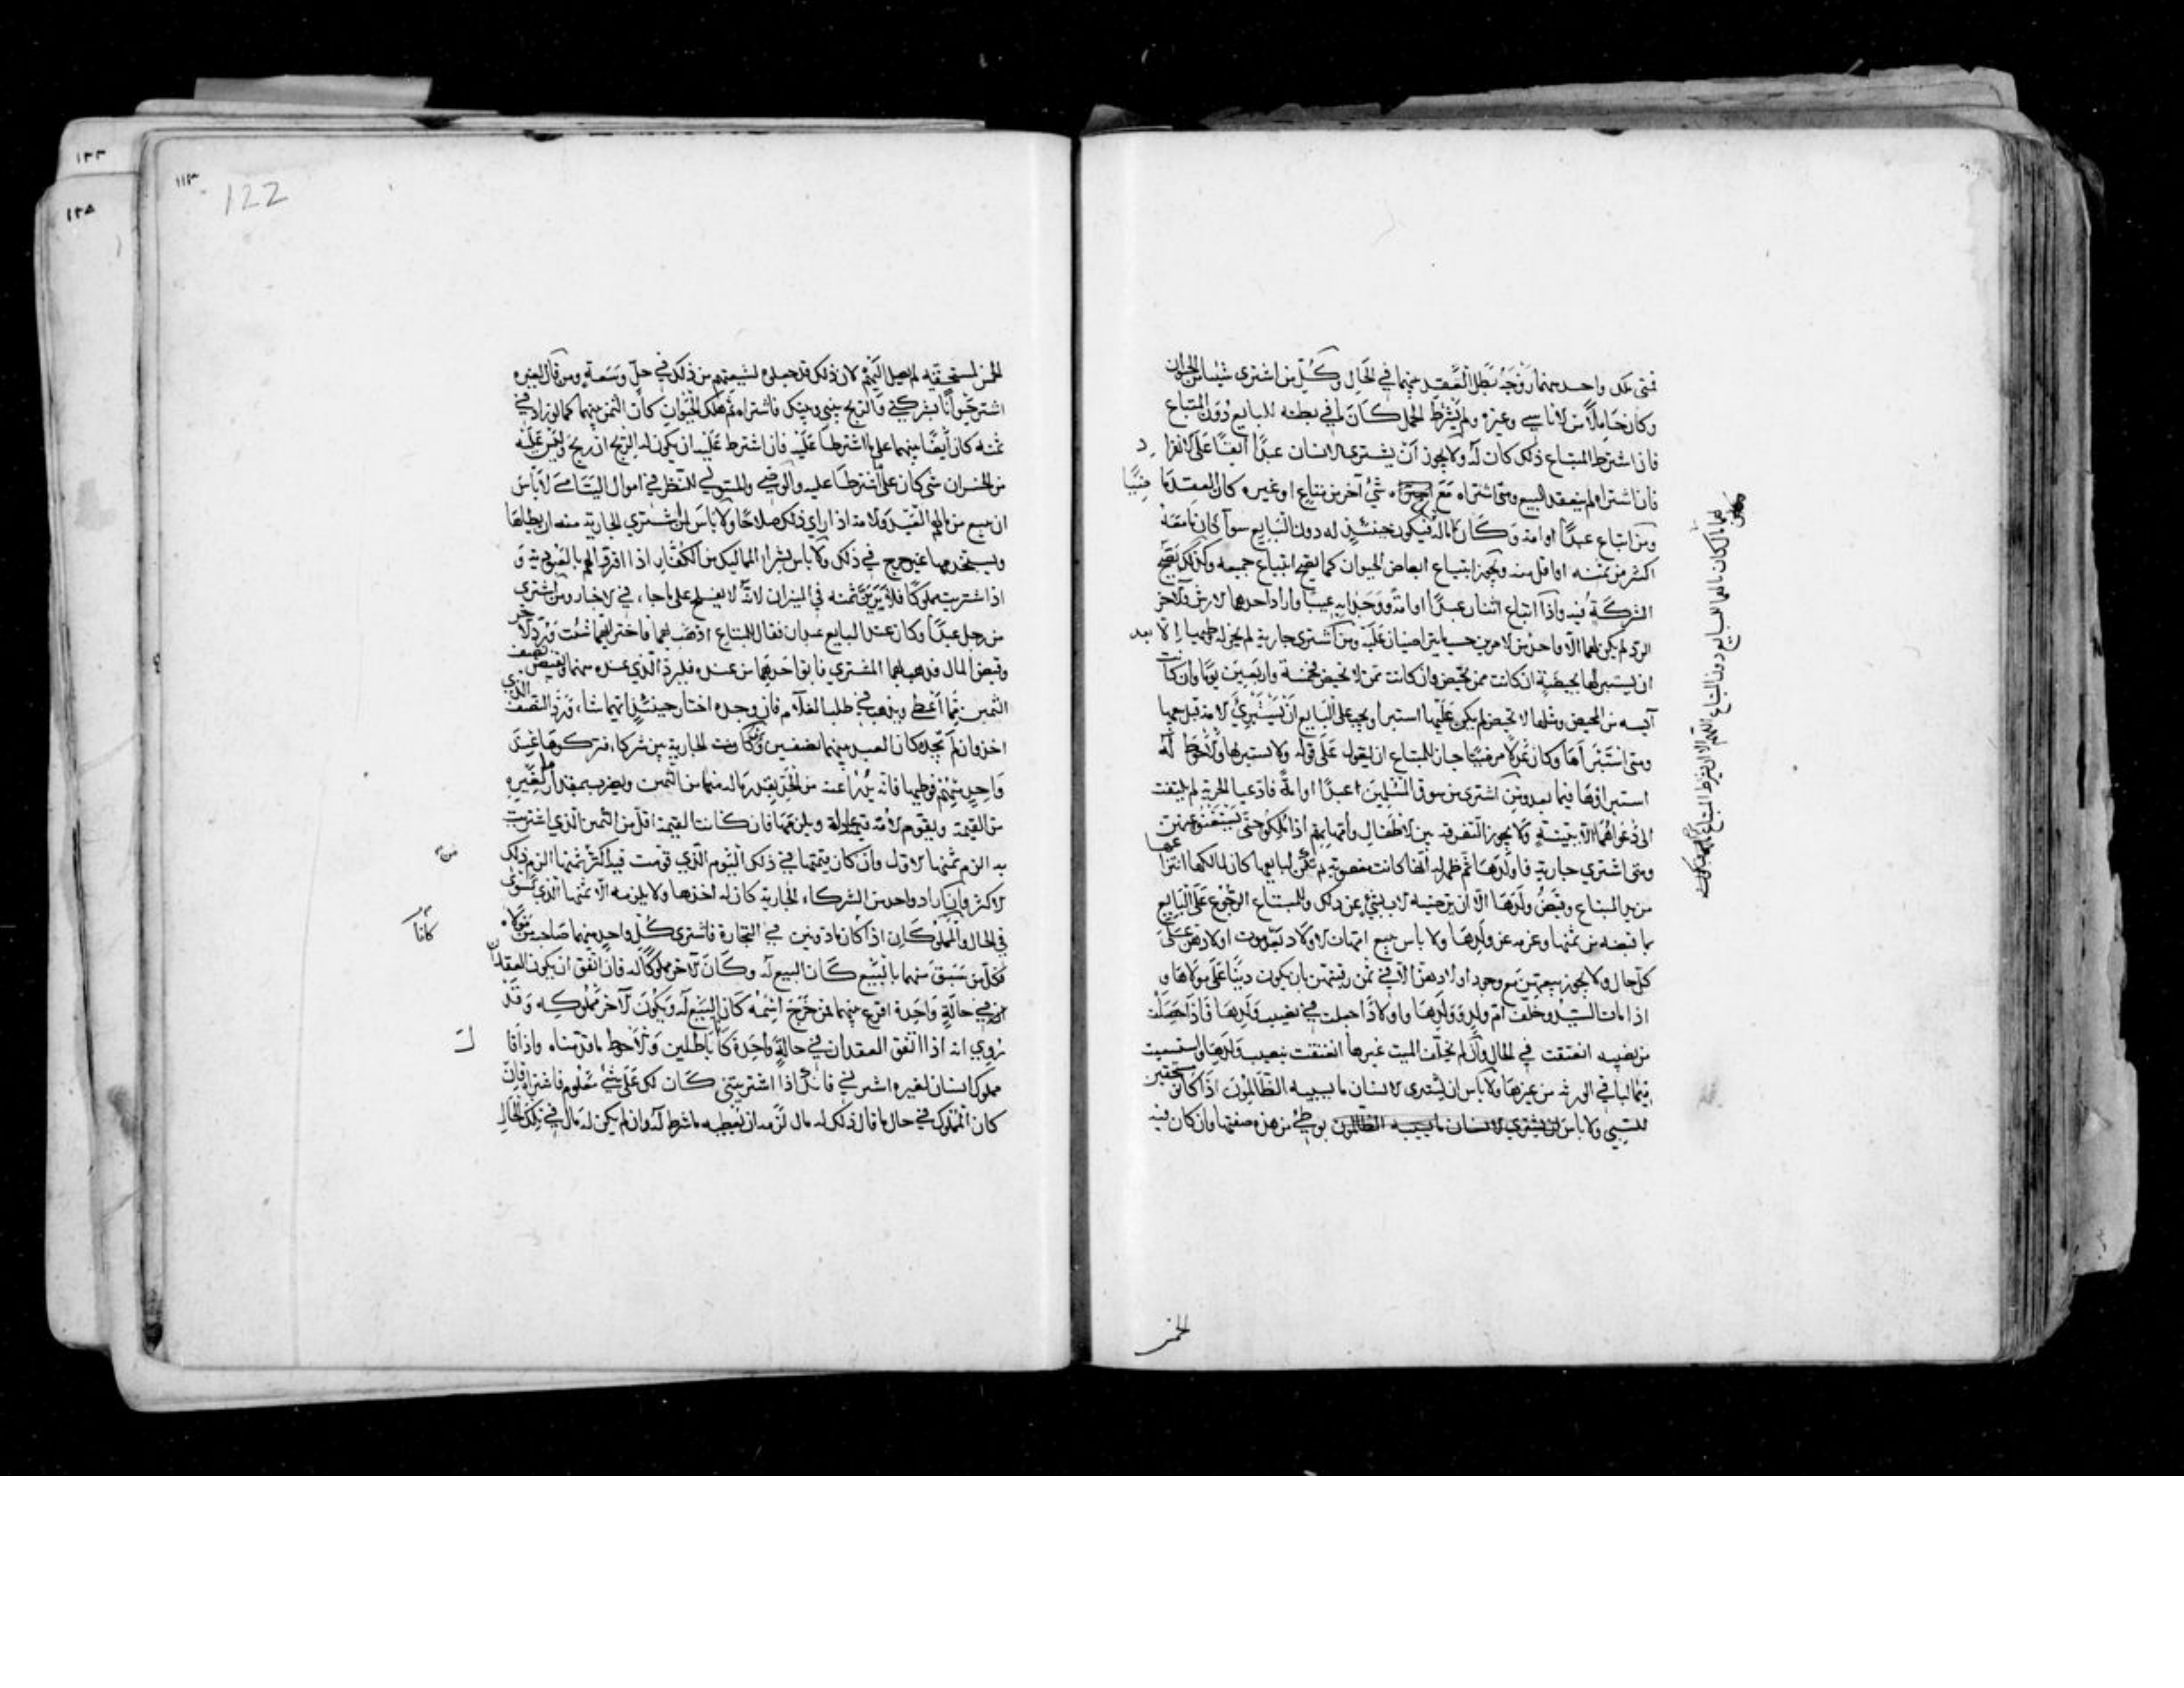 فمتى ملك واحد منهما زوجه بطل العقد بينهما في الحال وكل من اشترى شيئا من الحيوان
وكان حاملا من الاناسي وغيره ولم يشترط الحمل كان ما في بطنه للبايع دون المبتاع
فان اشترط المبتاع ذلك كان له ولا يجوز ان يشتري الانسان عبدا ابقا على الانفراد
فان اشتراه لم ينعقد البيع ومتى اشتراه مع شيء آخر من متاع او غيره كان العقد ماضيا
ومن ابتاع عبدا او امة وكان له مال فيكون حينئذ له دون البايع سوآ كان ما معه
اكثر من ثمنه او اقل منه ويجوز ابتياع ابعاض الحيوان كما يصح ابتياع جميعه وكذلك يصح
الشركة فيه واذا ابتاع اثنان عبدا او امة ووجدا به عيبا واراد احدهما الارش والآخر
الرد لم يكن لهما الا واحد من الامرين حسبما يتراضيان عليه ومن اشترى جارية لم يجز له وطيها الا بعد
ان يستبرئها بحيضة ان كانت ممن تحيض وان كانت ممن لا تحيض فخمسة واربعين يوما وان كانت
آيسه من المحيض ومثلها لا تحيض لم يكن عليها استبرا ويجب على البايع ان يستبري الامة قبل بيعها
ومتى استبراها وكان عدلا مرضيا جاز للمبتاع ان يعول على قوله ولا يستبرها والاحوط له
استبراؤها فيما بعد ومن اشترى من سوق المسلمين عبدا او امة فادعيا الحرية لم يلتفت
الى دعواهما الا ببينة ولا يجوز التفرقة بين الاطفال وامهاتهم اذا ملكوا حتى يستغنوا عنهن
ومتى اشترى جارية فاولدها ثم ظهر له انها كانت مغصوبة لم تكن لبايعها كان لمالكها انتزاعها
من يد المبتاع وقبض ولدها الا ان يرضيه الاب بشيء عن ذلك وللمبتاع الرجوع على البايع
بما قبضه من ثمنها وغرمه عن ولدها ولا باس ببيع امهات الاولاد بعد موت اولادهن على
كل حال ولا يجوز بيعهن مع وجود اولادهن الا في ثمن رقبتهن بان يكون دينا على مولاها و
اذا مات السيد وخلف ام ولد وولدها واولادا جعلت في نصيب ولدها فاذا حصلت
من نصيبه انعتقت في الحال وان لم يخلف الميت غيرها انعتقت بنصيب ولدها واستسعيت
فيما لباقي الورثة من غيرها ولا باس ان يشتري الانسان ما يسبيه الظالمون اذا كانوا مستحقين
للسبي ولا باس بوطي من هذه صفتها وان كان فيه
الخمس
122
الخمس لمستحقيه لم يصل اليهم لان ذلك قد جعلوه لشيعتهم من ذلك في حل وسعة ومن قال لغيره
اشتر حيوانا بشركتي والربح بيني وبينك فاشتراه ثم هلك الحيوان كان الثمن بينهما كما لو زاد في
ثمنه كان ايضا بينهما على ما اشترطا عليه فان اشترط عليه ان يكون له الربح ان ربح وليس عليه
من الخسران شي كان على ما اشترطا عليه والوصي والمتولي للنظر في اموال اليتامى لا باس
ان يبيع من مالهم العبد والامة اذا راي ذلك صلاحا ولا باس لمن اشترى الجارية منه ان يطاها
ويستخدمها غير حرج في ذلك ولا باس بشرا المماليك من الكفار اذا اقروا لهم بالعبودية و
اذا اشتريت مملوكا فلا يرين ثمنه في الميزان لانه لا يفلح على ما جاء في الاخبار ومن اشترى
من رجل عبدا وكان عند البايع عبدان فقال للمبتاع اذهب بهما فاختر ايهما شئت ورد الآخر
وقبض المال فذهب بهما المشتري فابق احدهما من عنده فليرد الذي عنده منهما ويقبض نصف
الثمن مما اعطى ويذهب في طلب الغلام فان وجده اختار حينئذ ايهما شاء ورد النصف الذي
اخذ وان لم يجده كان العبد بينهما نصفين ومتى كانت الجارية بين شركاء فتركوها عند
واحد منهم فوطيها فانه يدرا عنه من الحد بقدر ماله منها من الثمن ويضرب بمقدار ما لغيره
من القيمة ويقوم الامة قيمة عادلة ويلزمها فان كانت القيمة اقل من الثمن الذي اشتريت
به الزم ثمنها الاول وان كان قيمتها في ذلك اليوم الذي قومت فيه اكثر من ثمنها الزم ذلك
الاكثر وان اراد واحد من الشركاء الجارية كان له اخذها ولا يلزمه الا ثمنها الذي تسوى
في الحال والمملوكان اذا كانا ماذونين في التجارة فاشترى كل واحد منهما صاحبه من مولاه
فكل من سبق منهما بالبيع كان البيع له وكان الآخر مملوكا له فان اتفق ان يكون العقدان
في حالة واحدة اقرع بينهما فمن خرج اسمه كان البيع له ويكون الآخر مملوكه وقد
روي انه اذا اتفق العقدان في حالة واحدة كانا باطلين والاحوط ما قدمناه واذا قال
مملوك انسان لغيره اشترني فانك اذا اشتريتني كان لك على شيء معلوم فاشتراه فان
كان المملوك في حال ما قال ذلك له مال لزمه ان يعطيه ما شرط له وان لم يكن له مال في تلك الحال